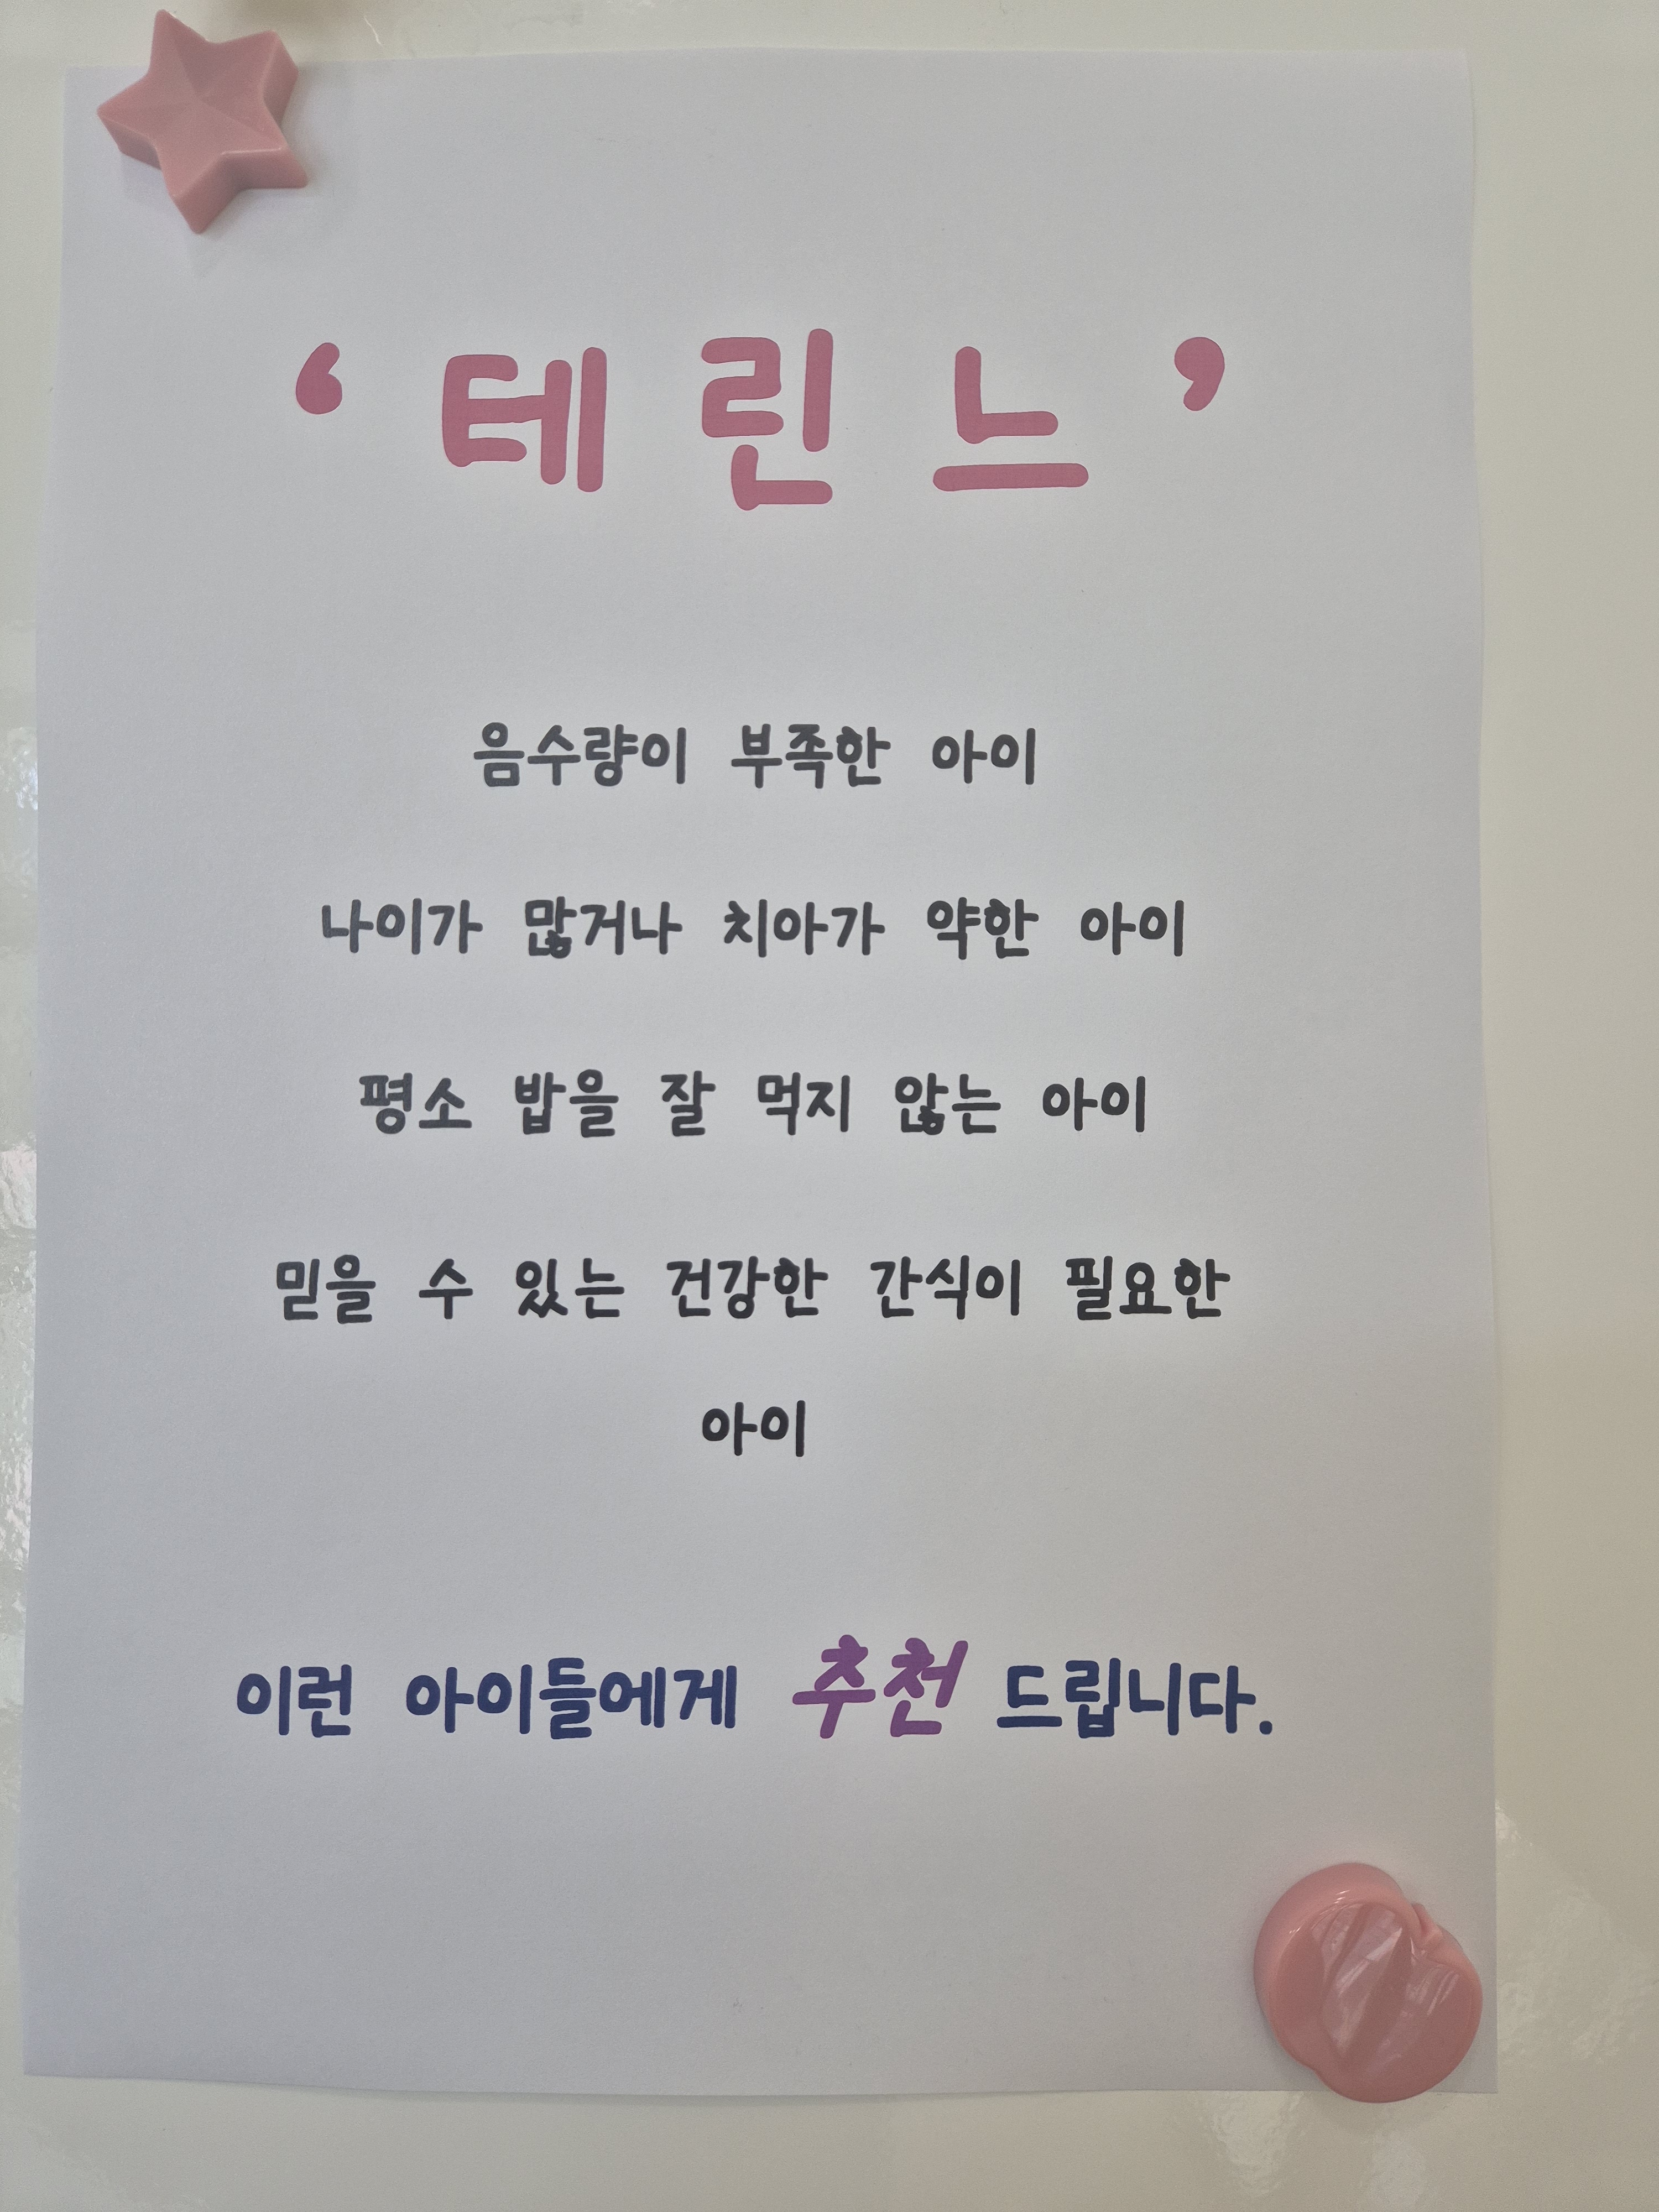 ‘ 테 린 느 ’
음수량이 부족한 아이
나이가 많거나 치아가 약한 아이
평소 밥을 잘 먹지 않는 아이
믿을 수 있는 건강한 간식이 필요한
아이
이런 아이들에게 추천 드립니다.